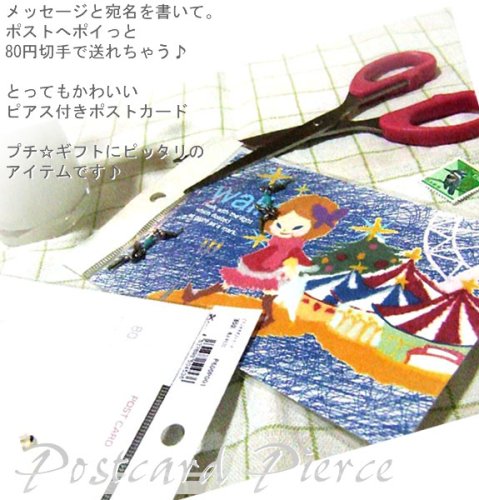 メッセージと宛名を書いて。
ポストへポイっと
80円切手で送れちゃう♪
とってもかわいい
ピアス付きポストカード
プチ☆ギフトにピッタリの
アイテムです♪
way
80
POST CARD
Postcard Pierce